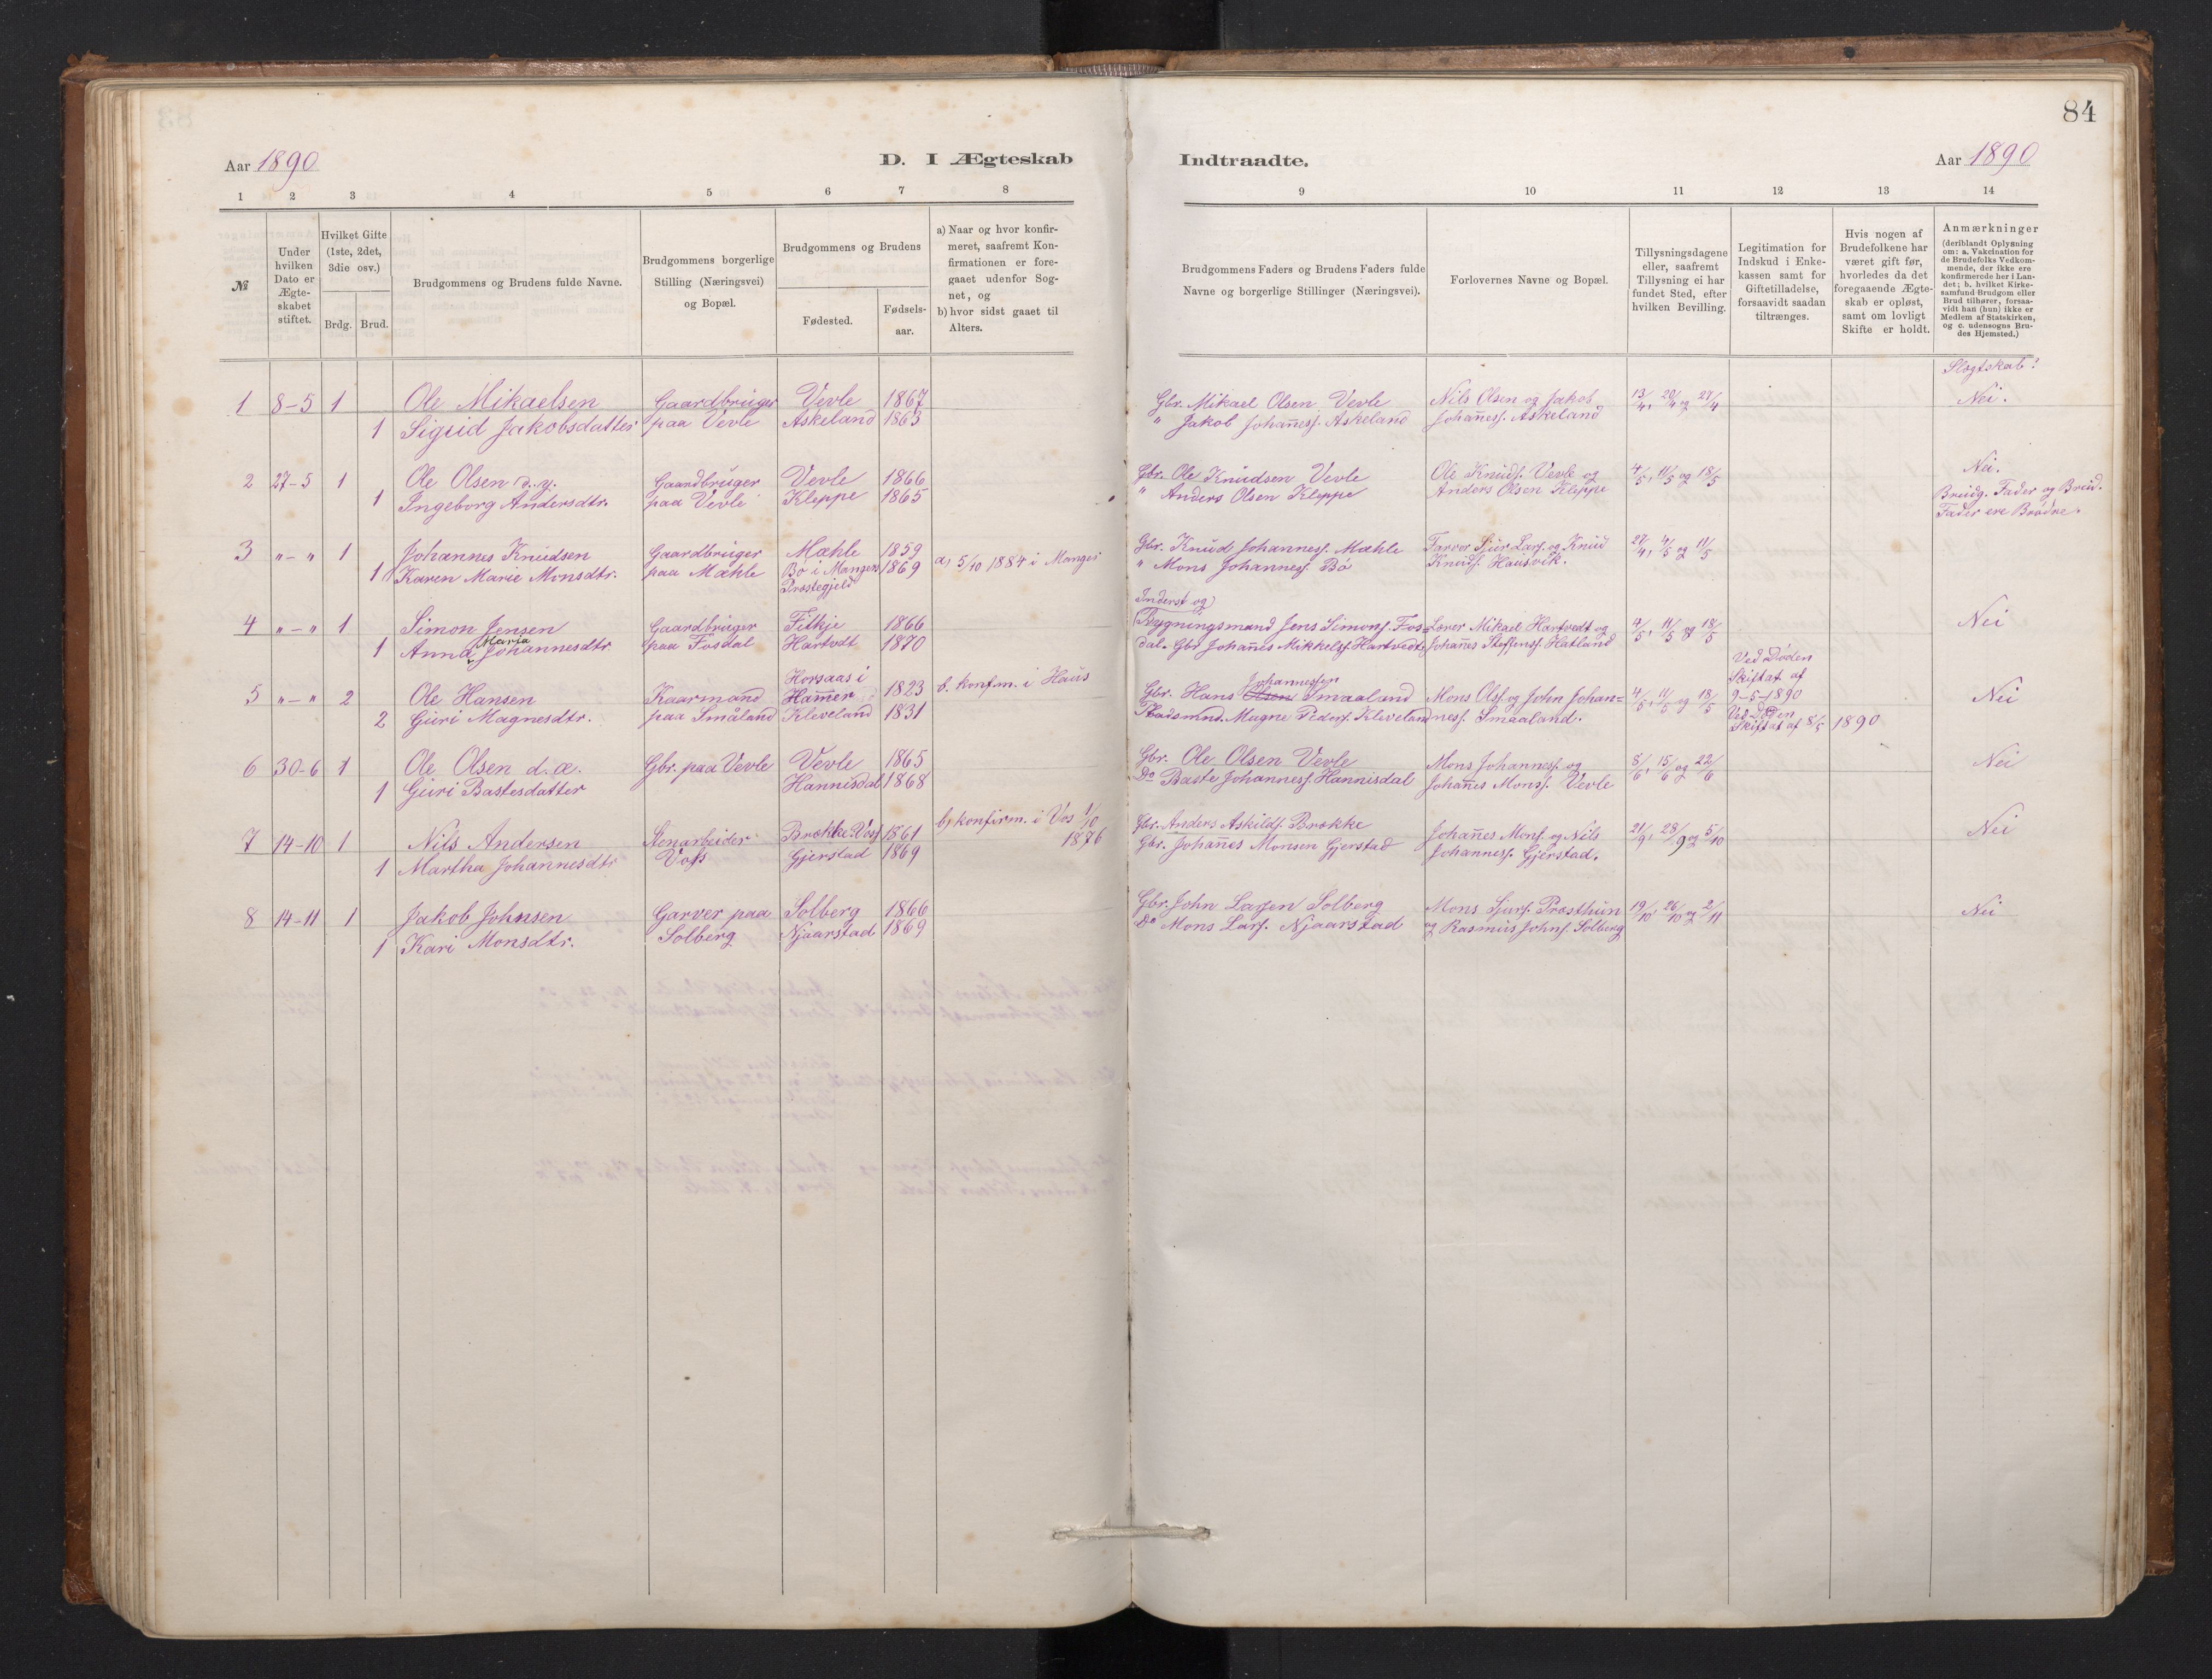 84
Aar 1890
D. I Ægteskab
Indtraadte.
Aar 1890
1 2 3 4 5 6 7 8 9 10 11 12 13 14
№
Under hvilken Dato er Ægte-skabet stiftet.
Hvilket Gifte (1ste, 2det, 3die osv.)
Brdg. Brud.
Brudgommens og Brudens fulde Navne.
Brudgommens borgerlige Stilling (Næringsvei) og Bopæl.
Brudgommens og Brudens
Fødested.
Fødsels-aar.
a) Naar og hvor konfir-meret, saafremt Kon-firmationen er fore-gaaet udenfor Sog-net, og
b) hvor sidst gaaet til Alters.
Brudgommens Faders og Brudens Faders fulde Navne og borgerlige Stillinger (Næringsvei).
Forlovernes Navne og Bopæl.
Tillysningsdagene eller, saafremt Tillysning ei har fundet Sted, efter hvilken Bevilling.
Legitimation for Indskud i Enke-kassen samt for Giftetilladelse, forsaavidt saadan tiltrænges.
Hvis nogen af Brudefolkene har været gift før, hvorledes da det foregaaende Ægte-skab er opløst, samt om lovligt Skifte er holdt.
Anmærkninger
(deriblandt Oplysning om: a, Vakcination for de Brudefolks Vedkom-mende, der ikke ere konfirmerede her i Lan-det; b. hvilket Kirke-samfund Brudgom eller Brud tilhører, forsaa-vidt han (hun) ikke er Medlem af Statskirken, og c. udensogns Bru-des Hjemsted.)
Slægtskab?
1 8-5 1 Ole Mikaelsen Gaardbruger Vevle 1867 Gbr. Mikael Olsen Vevle Nils Olsen og Jakob 13/4, 20/4 og 27/4 Nei.
1 Sigrid Jakobsdatter paa Vevle Askeland 1863 " Jakob Johañesf. Askeland Johañesf. Askeland
2 27-5 1 Ole Olsen d.y. Gaardbruger Vevle 1866 Gbr. Ole Knudsen Vevle Ole Knudf. Vevle og 4/5, 11/5 og 18/5 Nei.
1 Ingeborg Andersdtr. paa Vevle Kleppe 1865 " Anders Olsen Kleppe Anders Olsen Kleppe Brudg. Fader og Brud.
Fader ere Brødre.
3 "-" 1 Johannes Knudsen Gaardbruger Mæhle 1859 a, 5/10 1884 i Manger Gbr. Knud Johannesf. Mæhle Farver Sjur Larf. og Knud 27/4, 4/5 og 11/5
1 Karen Marie Monsdtr. paa Mæhle Bø i Mangers 1869 " Mons Johannesf. Bö Knudf. Hausvik.
Præstegjeld
Inderst og
4 "-" 1 Simon Jensen Gaardbruger Fitkje 1866 Bygningsmand Jens Simonf. Fos- Lærer Mikael Hartvedt og 4/5, 11/5 og 18/5 Nei
Maria
1 Anna Johannesdtr paa Fosdal Hartvedt 1870 dal. Gbr Johañes Mikkelsf. Hartvedt Johañes Steffensf. Hatland
Horsaas i
5 "-" 2 Ole Hansen Kaarmand Hamer 1823 b. konfm. i Haus Johannessen
Gbr. Hans Olsen Smaaland Mons Olsf. og John Johan= 4/5, 11/5 og 18/5 Ved Døden
Skiftat af
9-5-1890 Nei
2 Guri Magnesdtr. paa Småland Kleveland 1831 Magne Pedersf. Kleveland nesf. Smaaland. Ved Døden
Skiftat af 8/5 1890
6 30-6 1 Ole Olsen d.æ. Gbr. paa Vevle Vevle 1865 Gbr. Ole Olsen Vevle Mons Johannesf. og 8/6, 15/6 og 22/6 Nei
1 Guri Bastesdatter Hannisdal 1868 Do Baste Johannesf. Hannisdal Johañes Monsf. Vevle
7 14-10 1 Nils Andersen Stenarbeider Brække Voss 1861 b) konfirm. i Vos 1/10 1876 Gbr. Anders Askildf. Brække Johañes Monf. og Nils 21/9, 28/9 og 5/10 Nei
1 Martha Johannesdtr Voss Gjerstad 1869 Gbr. Johañes Monsen Gjerstad Johannesf. Gjerstad.
8 14-11 1 Jakob Johnsen Garver paa Solberg 1866 Gbr. John Larsen Solberg Mons Sjurf. Præsthun 19/10, 26/10 og 2/11 Nei
1 Kari Monsdtr. Solberg Njaarstad 1869 Do Mons Larf. Njaarstad og Rasmus Johnf. Solberg